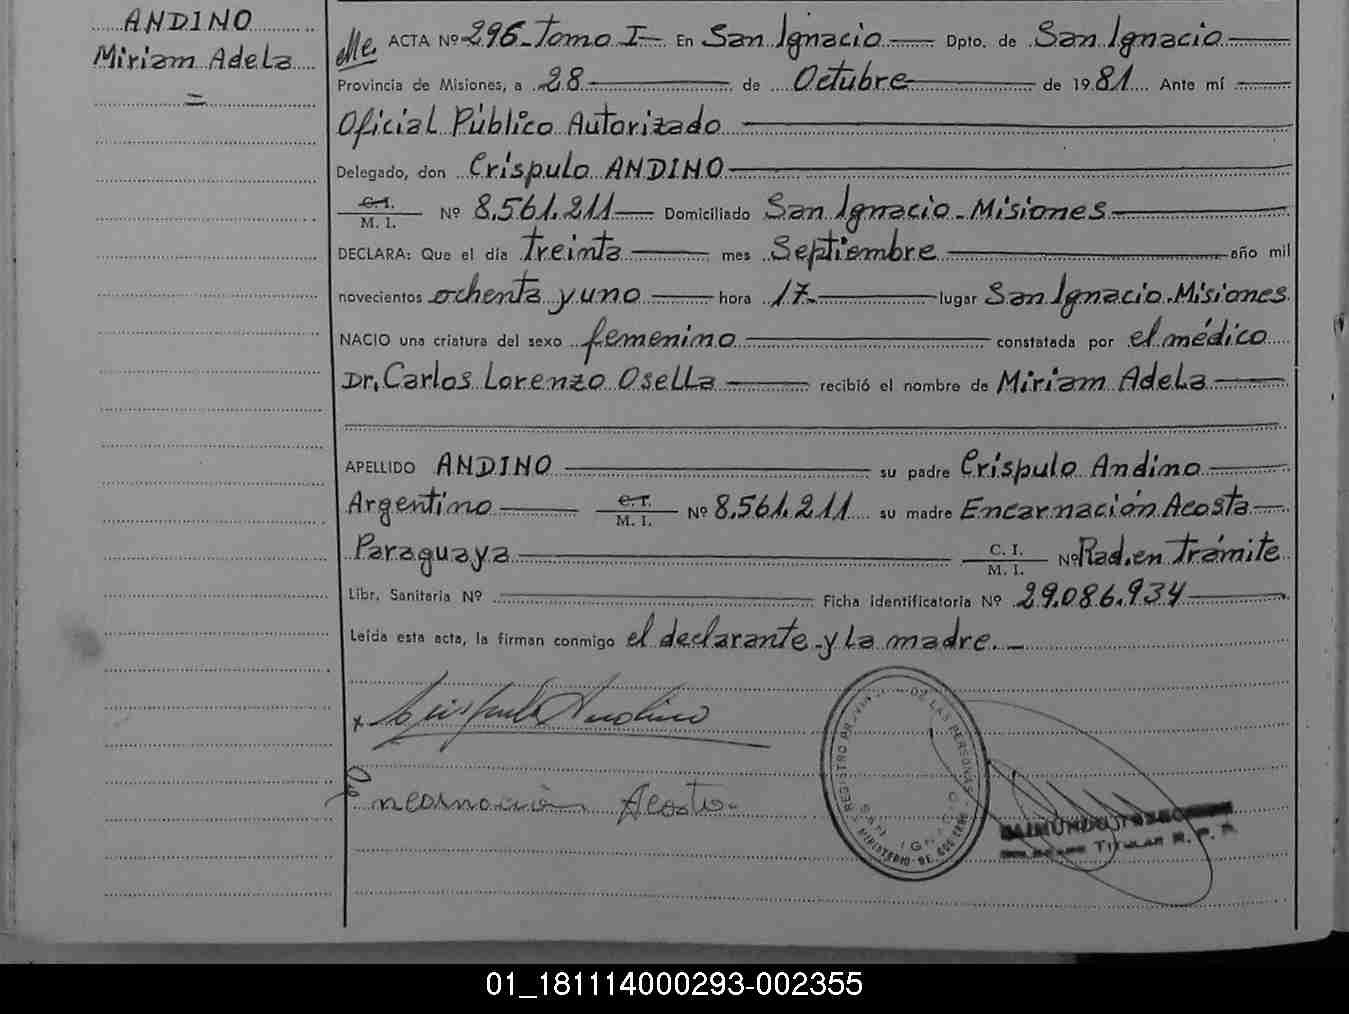 ANDINO
Miriam Adela
=
ACTA Nº 296 - Tomo I - En San Ignacio Dpto. de San Ignacio
Provincia de Misiones, a 28 de Octubre de 1981 Ante mí
Oficial Público Autorizado
Delegado, don Críspulo ANDINO
C.I. / M. I. Nº 8.561.211 Domiciliado San Ignacio - Misiones
DECLARA: Que el día treinta mes Septiembre año mil
novecientos ochenta y uno hora 17.- lugar San Ignacio. Misiones
NACIO una criatura del sexo femenino constatada por el médico
Dr. Carlos Lorenzo Osella recibió el nombre de Miriam Adela
APELLIDO ANDINO su padre Críspulo Andino
Argentino C.I. / M. I. Nº 8.561.211 su madre Encarnación Acosta
Paraguaya C. I. / M. I. Nº Rad. en Trámite
Libr. Sanitaria Nº Ficha identificatoria Nº 29.086.934
Leída esta acta, la firman conmigo el declarante y la madre. -
x Crispulo Andino
Encarnación Acosta
REGISTRO PROVINCIAL DE LAS PERSONAS
SAN IGNACIO
MINISTERIO DE GOBIERNO
RAIMUNDO
TITULAR R. P. P.
01_181114000293-002355